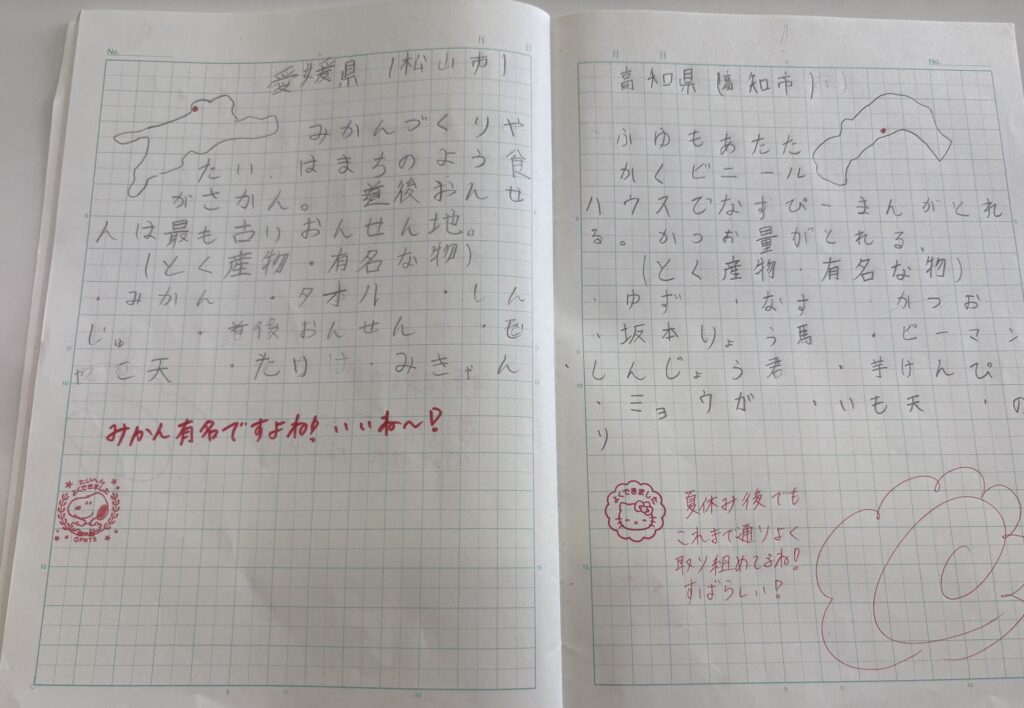 No.
月 日
愛媛県(松山市)
みかんづくりや
たい、はまちのよう食
がさかん。道後おんせ
んは最も古いおんせん地。
(とく産物・有名な物)
・みかん ・タオル ・しん
じゅ ・道後おんせん ・じ
ゃこ天 ・たい ・みきゃん
みかん有名ですよね!いいね〜!
たいへん
よくできました
©PNTS
月 日
No.
高知県(高知市)
ふゆもあたた
かくビニール
ハウスでなすぴーまんがとれ
る。かつお量がとれる、
(とく産物・有名な物)
・ゆず ・なす ・かつお
・坂本りょう馬 ・ピーマン
・しんじょう君 ・芋けんぴ
・ミョウガ ・いも天 ・の
り
よくできました
夏休み後でも
これまで通りよく
取り組めてるね!
すばらしい!